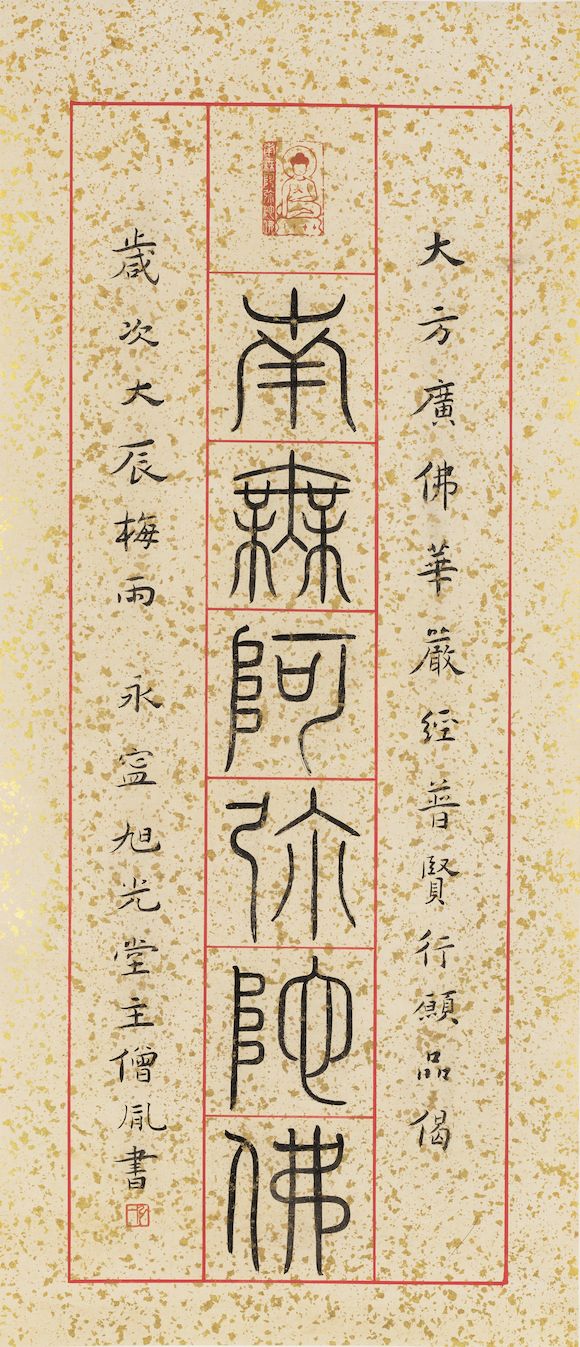 大方廣佛華嚴經普賢行願品偈
南無阿弥陀佛
南無阿弥陀佛
歲次大辰梅雨 永寍旭光堂主僧胤書